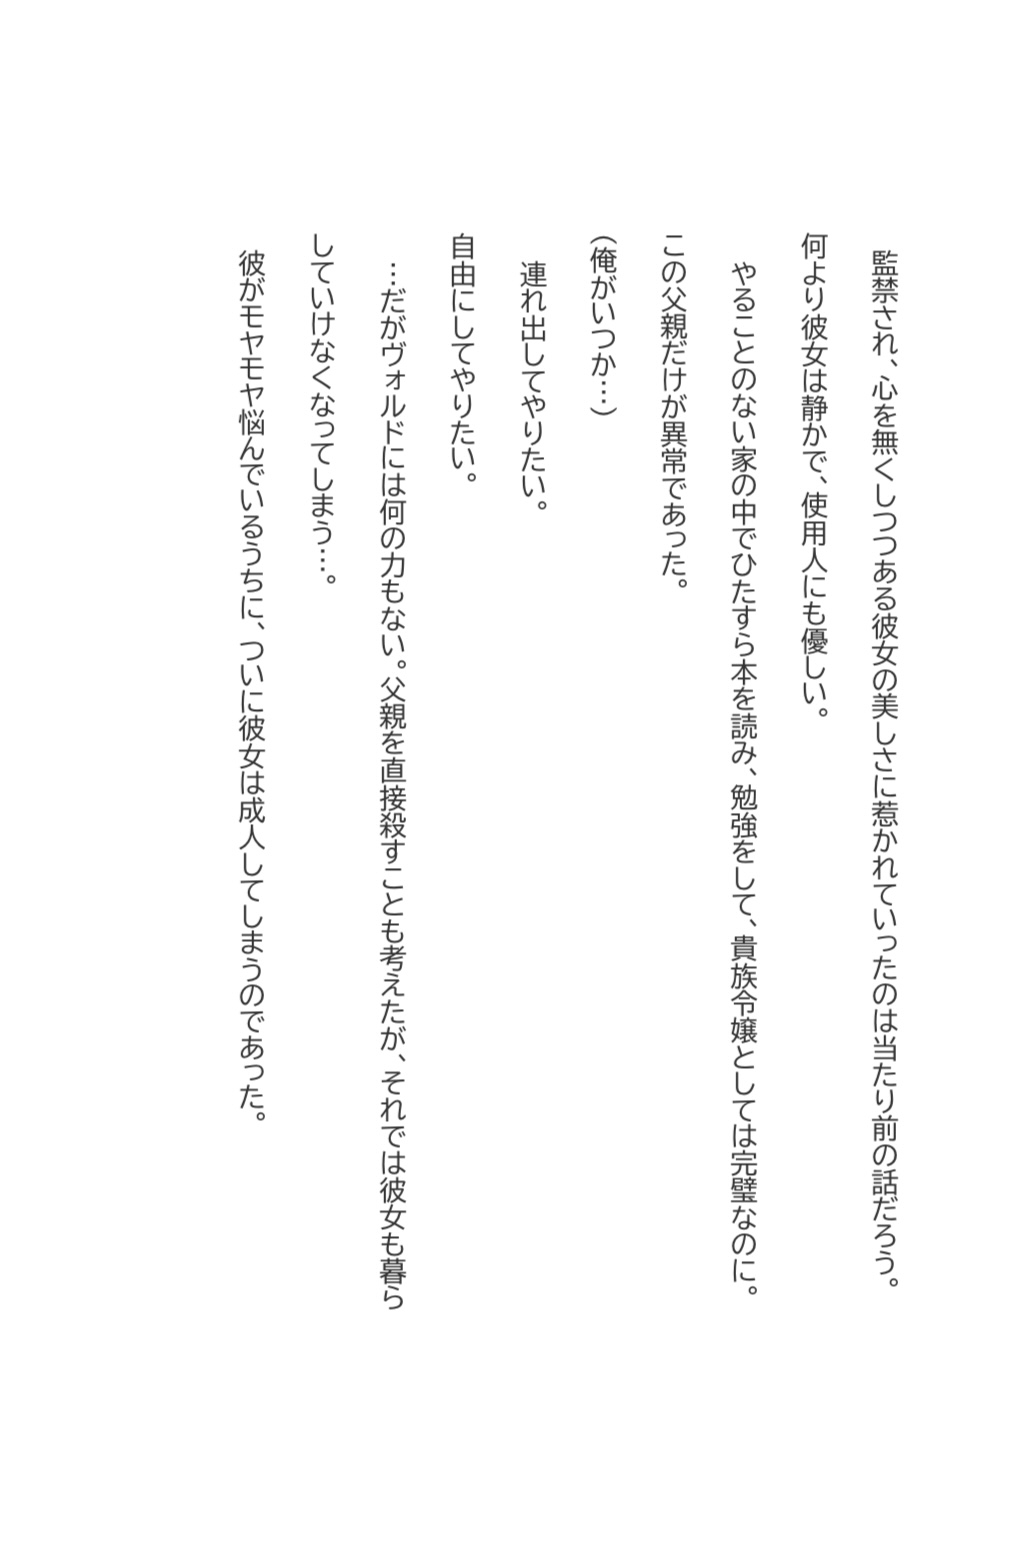 監禁され、心を無くしつつある彼女の美しさに惹かれていったのは当たり前の話だろう。
何より彼女は静かで、使用人にも優しい。
やることのない家の中でひたすら本を読み、勉強をして、貴族令嬢としては完璧なのに。
この父親だけが異常であった。
(俺がいつか…)
連れ出してやりたい。
自由にしてやりたい。
…だがヴォルドには何の力もない。父親を直接殺すことも考えたが、それでは彼女も暮ら
していけなくなってしまう…。
彼がモヤモヤ悩んでいるうちに、ついに彼女は成人してしまうのであった。